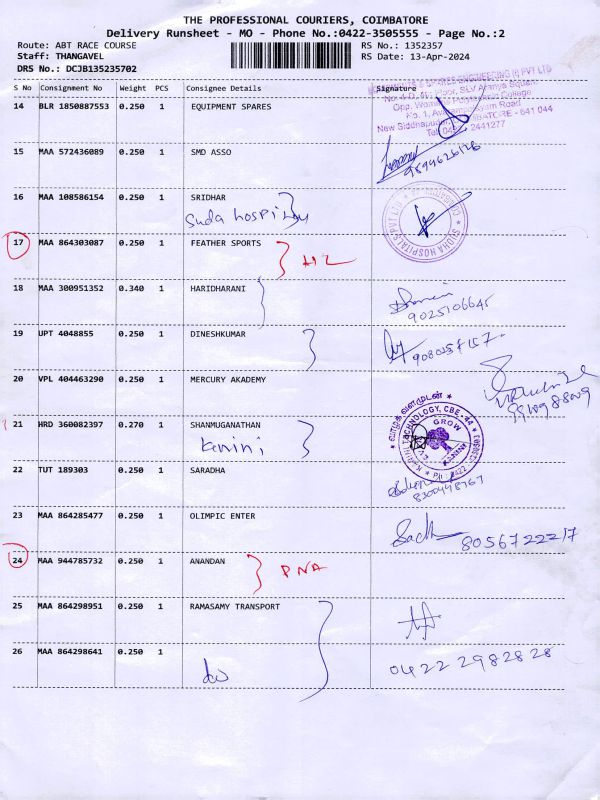 THE PROFESSIONAL COURIERS, COIMBATORE
Delivery Runsheet - MO - Phone No.:0422-3505555 - Page No.:2
Route: ABT RACE COURSE RS No.: 1352357
Staff: THANGAVEL RS Date: 13-Apr-2024
DRS No.: DCJB135235702
S No Consignment No Weight PCS Consignee Details Signature
14 BLR 1850887553 0.250 1 EQUIPMENT SPARES
15 MAA 572436089 0.250 1 SMD ASSO
9894626126
16 MAA 108586154 0.250 1 SRIDHAR
Suda hospital
SUDHA HOSPITALS
17 MAA 864303087 0.250 1 FEATHER SPORTS
18 MAA 300951352 0.340 1 HARIDHARANI
9025106645
19 UPT 4048855 0.250 1 DINESHKUMAR
20 VPL 404463290 0.250 1 MERCURY AKADEMY
21 HRD 360082397 0.270 1 SHANMUGANATHAN
Kanini
வாழ்க வளமுடன்
TECHNOLOGY, CBE-44
GROW
22 TUT 189303 0.250 1 SARADHA
8300448767
23 MAA 864285477 0.250 1 OLIMPIC ENTER
8056722217
24 MAA 944785732 0.250 1 ANANDAN
PNA
25 MAA 864298951 0.250 1 RAMASAMY TRANSPORT
26 MAA 864298641 0.250 1
0422 2982828